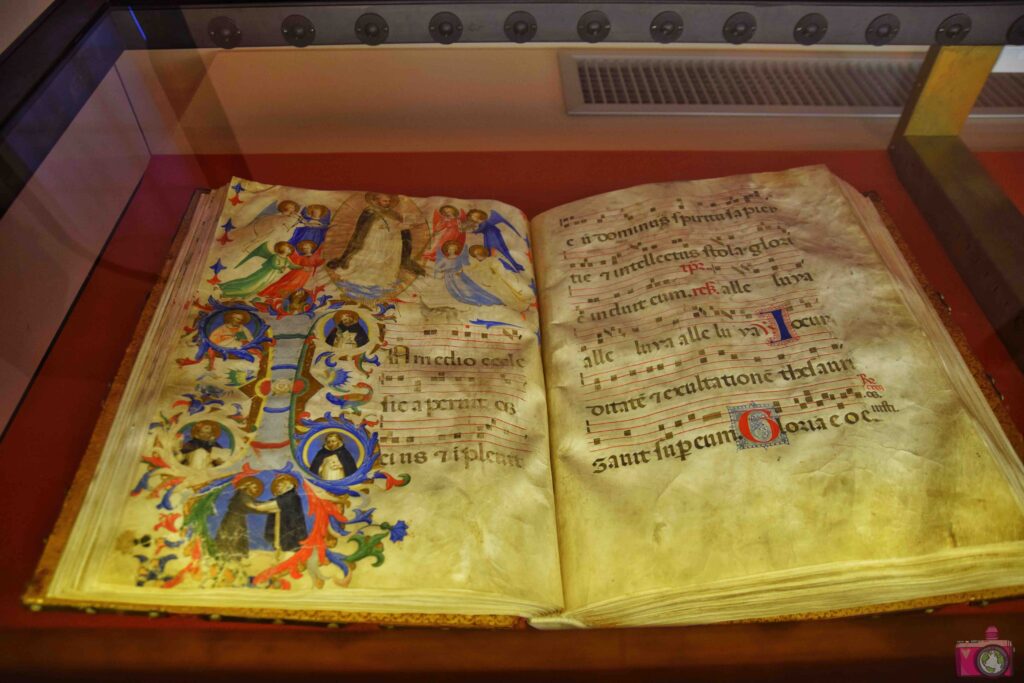 IN medio eccle
sie aperuit os
eius ⁊ ipleuit
e ū dominus spiritu sapien
tie ⁊ intellectus stola glori
e induit eum. alle luya
alle luya alle luya Iocun
ditatē ⁊ exultationē thesauri
zauit sup̄ eum. Gloria